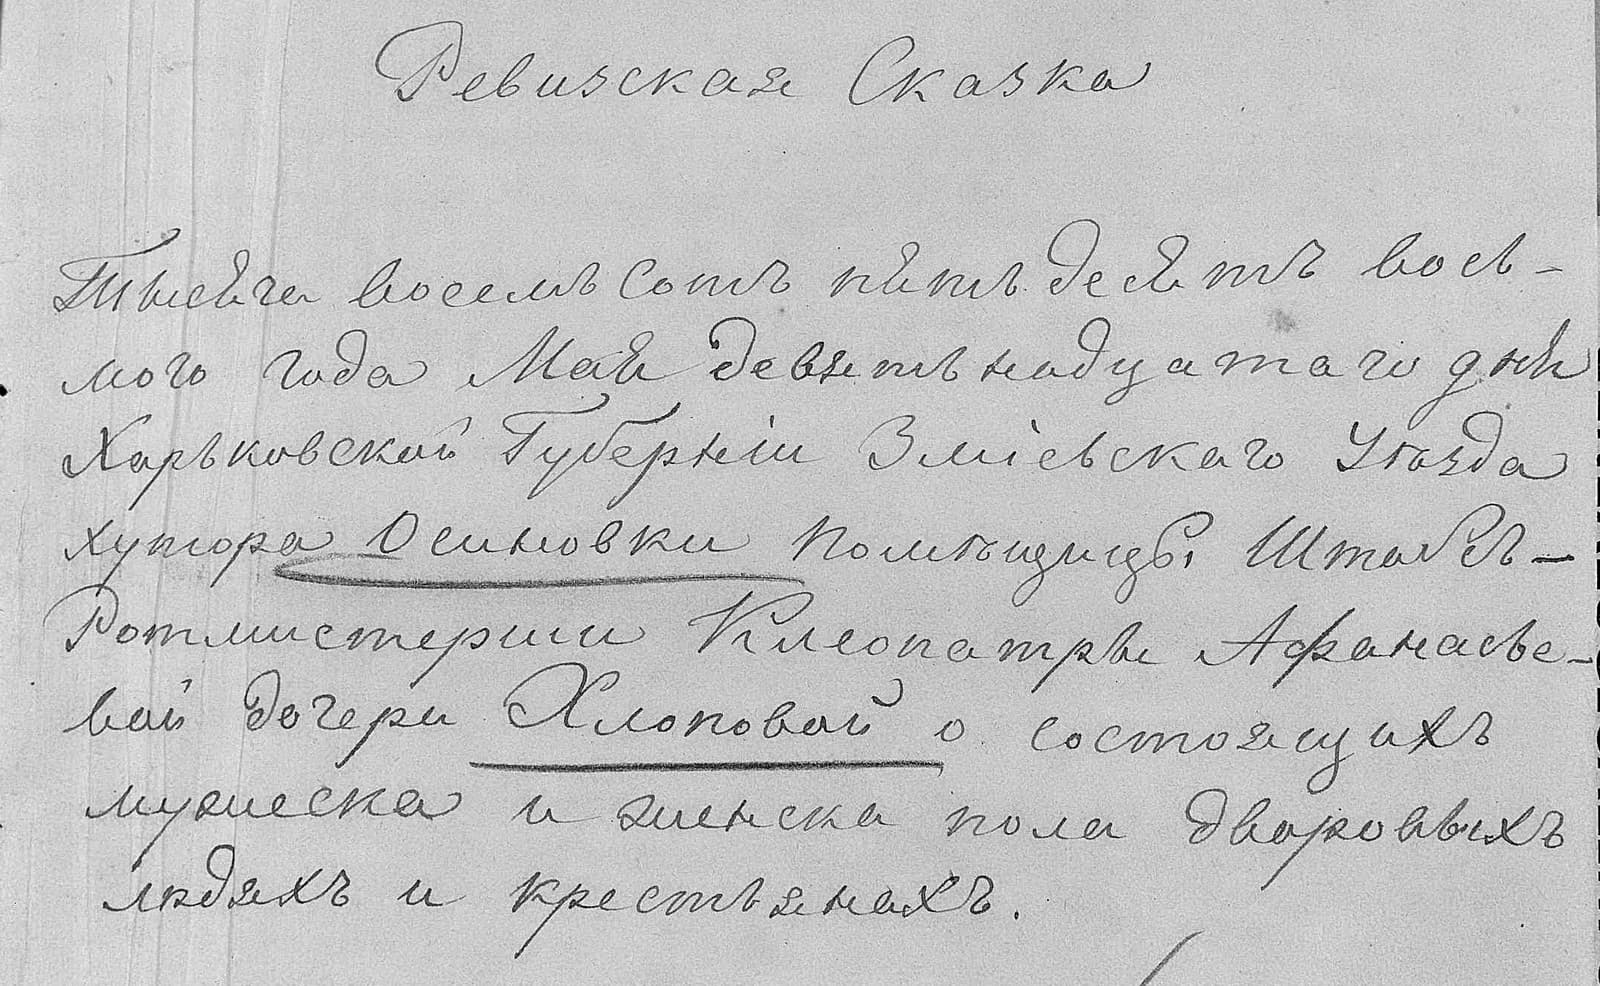 Ревизская Сказка
Тысяча восемьсотъ пятьдесятъ вось-
мого года Мая девятьнадцатаго дня
Харьковской Губерніи Зміевскаго Уѣзда
хутора Осиновки помѣщицы Штабсъ-
Ротмистерши Клеопатры Афанасье-
вой дочери Хлоповой о состоящихъ
мужеска и женска пола дворовыхъ
людяхъ и крестьянахъ.